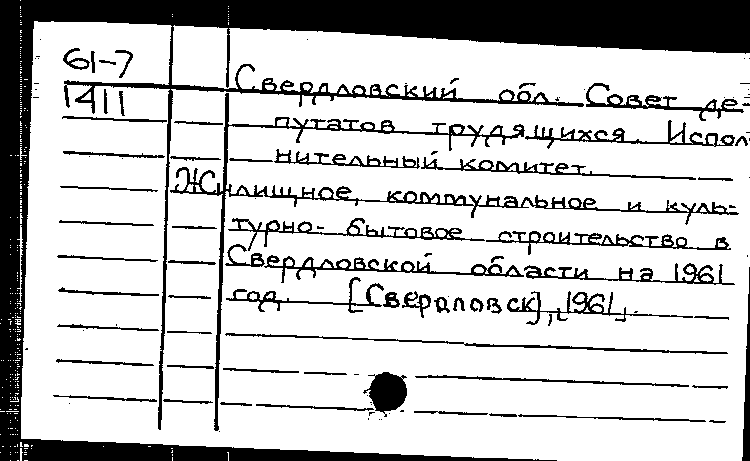 61-7
1411
Свердловский обл. Совет де-
путатов трудящихся. Испол-
нительный комитет.
Жилищное, коммунальное и куль-
турно-бытовое строительство в
Свердловской области на 1961
год. [Свердловск], [1961].